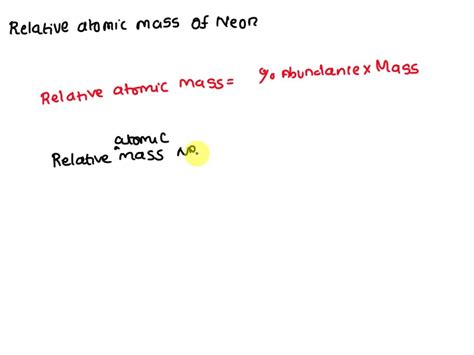 Relative atomic mass of Neon
Relative atomic mass = % Abundance x Mass
atomic
Relative mass No.